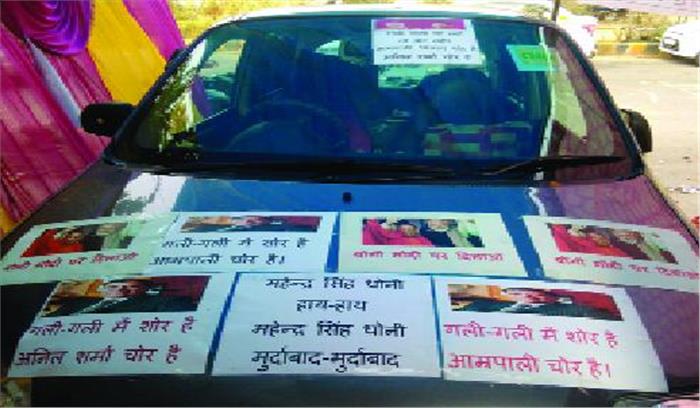 आम्रपाली
चोर है
अनिल शर्मा चोर है
मोदी पर
गली-गली में शोर है
आम्रपाली चोर है।
धोनी मोदी पर
धोनी मोदी पर
गली-गली में शोर है
अनिल शर्मा चोर है
महेन्द्र सिंह धोनी
हाय-हाय
महेन्द्र सिंह धोनी
मुर्दाबाद-मुर्दाबाद
गली-गली में शोर है
आम्रपाली चोर है।